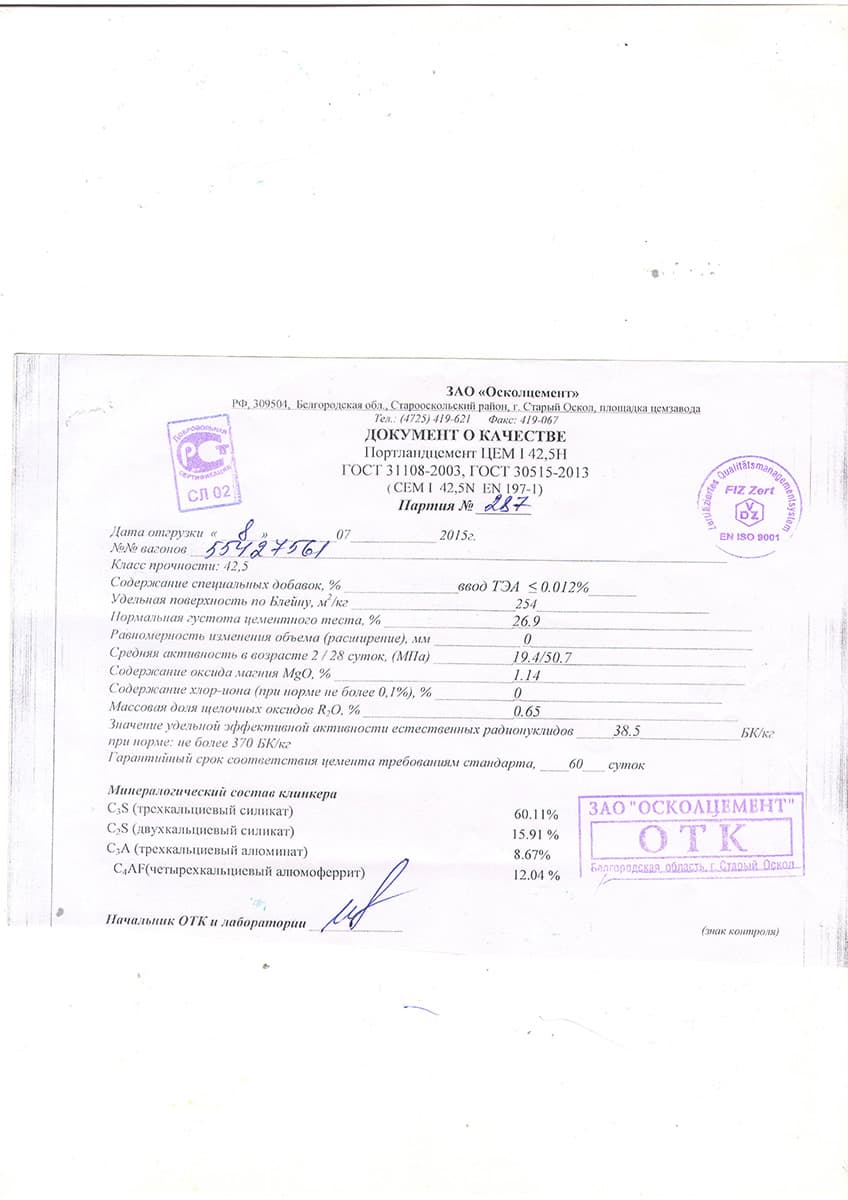 ЗАО «Осколцемент»
РФ, 309504, Белгородская обл., Старооскольский район, г. Старый Оскол, площадка цемзавода
Тел.: (4725) 419-621 Факс: 419-067
ДОКУМЕНТ О КАЧЕСТВЕ
Портландцемент ЦЕМ I 42,5Н
ГОСТ 31108-2003, ГОСТ 30515-2013
(CEM I 42,5N EN 197-1)
Партия № 287
ДОБРОВОЛЬНАЯ
РСТ
СЕРТИФИКАЦИЯ
СЛ 02
Zertifiziertes Qualitätsmanagementsystem
FIZ Zert
VDZ
EN ISO 9001
Дата отгрузки « 8 » 07 2015г.
№№ вагонов 55427561
Класс прочности: 42,5
Содержание специальных добавок, % ввод ТЭА ≤ 0.012%
Удельная поверхность по Блейну, м²/кг 254
Нормальная густота цементного теста, % 26.9
Равномерность изменения объема (расширение), мм 0
Средняя активность в возрасте 2 / 28 суток, (МПа) 19.4/50.7
Содержание оксида магния MgO, % 1.14
Содержание хлор-иона (при норме не более 0,1%), % 0
Массовая доля щелочных оксидов R₂O, % 0.65
Значение удельной эффективной активности естественных радионуклидов 38.5 БК/кг
при норме: не более 370 БК/кг
Гарантийный срок соответствия цемента требованиям стандарта, 60 суток
Минералогический состав клинкера
C₃S (трехкальциевый силикат) 60.11%
C₂S (двухкальциевый силикат) 15.91 %
C₃A (трехкальциевый алюминат) 8.67%
C₄AF(четырехкальциевый алюмоферрит) 12.04 %
ЗАО "ОСКОЛЦЕМЕНТ"
ОТК
Белгородская область, г. Старый Оскол
Начальник ОТК и лаборатории
(знак контроля)